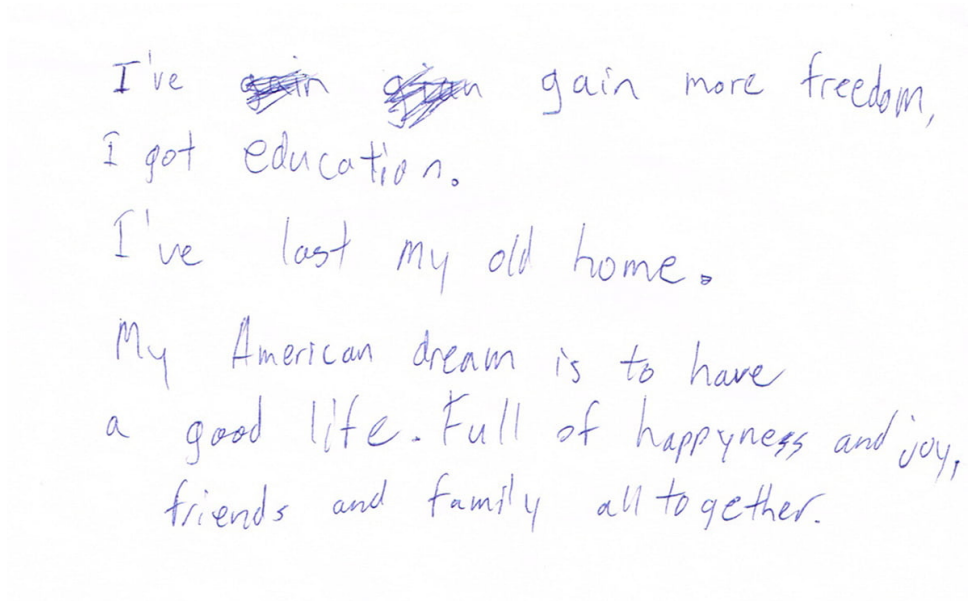 I've gain more freedom,
I got education.
I've last my old home.
My American dream is to have
a good life. Full of happyness and joy,
friends and family all together.